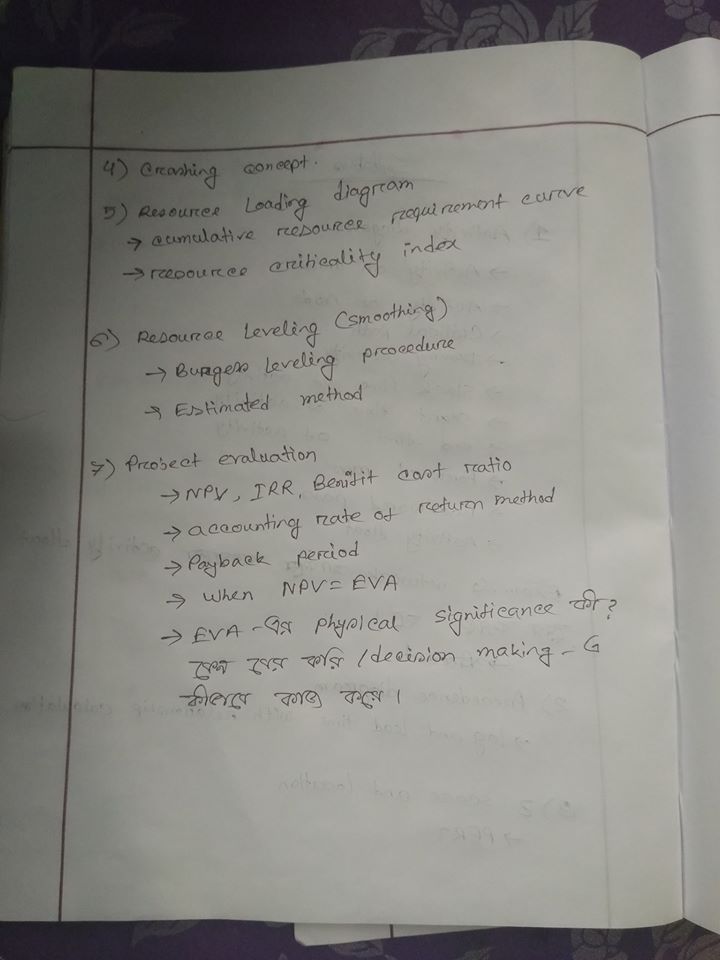 4) Crashing concept.
5) Resource Loading diagram
→ cumulative resource requirement curve
→ resource criticality index
6) Resource Leveling (smoothing)
→ Burgess leveling procedure
→ Estimated method
7) Project evaluation
→ NPV, IRR, Benifit cost ratio
→ accounting rate of return method
→ Payback period
→ When NPV = EVA
→ EVA-এর physical significance কী?
কেন বের করি / decision making - এ
কীভাবে কাজ করে।